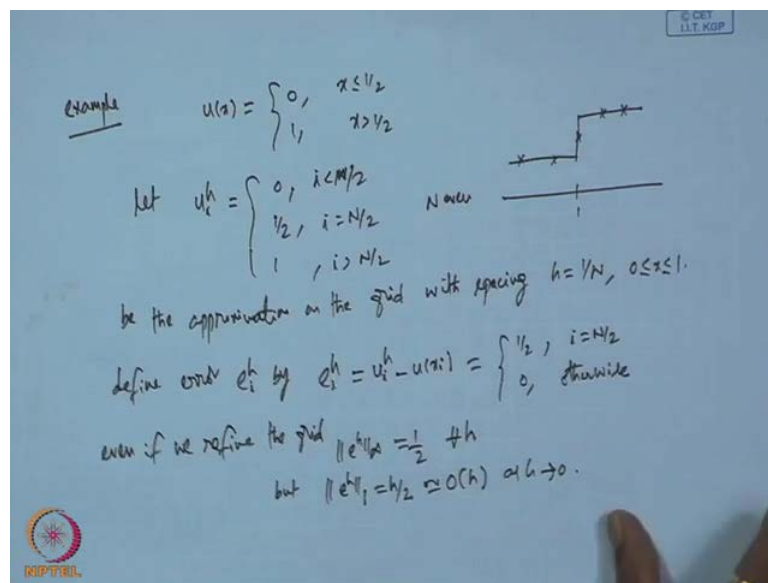 © CET
I.I.T. KGP
example u(x) = { 0, x ≤ 1/2
1, x > 1/2
Let u_i^h = { 0, i < N/2
1/2, i = N/2 N even
1, i > N/2
be the approximation on the grid with spacing h = 1/N, 0 ≤ x ≤ 1.
define error e_i^h by e_i^h = u_i^h - u(x_i) = { 1/2, i = N/2
0, otherwise
even if we refine the grid ||e^h||_∞ = 1/2 ∀h
but ||e^h||_1 = h/2 ≃ O(h) as h → 0.
NPTEL